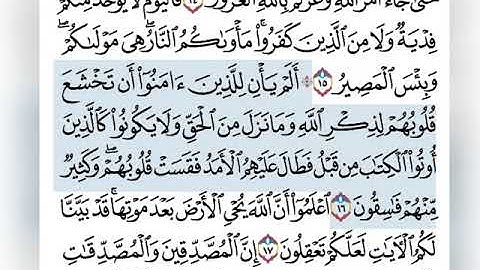 حَتَّىٰ جَآءَ أَمْرُ ٱللَّهِ وَغَرَّكُم بِٱللَّهِ ٱلْغَرُورُ ١٤ فَٱلْيَوْمَ لَا يُؤْخَذُ مِنكُمْ
فِدْيَةٌ وَلَا مِنَ ٱلَّذِينَ كَفَرُوا۟ ۚ مَأْوَىٰكُمُ ٱلنَّارُ ۖ هِىَ مَوْلَىٰكُمْ ۖ
وَبِئْسَ ٱلْمَصِيرُ ١٥ ۞ أَلَمْ يَأْنِ لِلَّذِينَ ءَامَنُوٓا۟ أَن تَخْشَعَ
قُلُوبُهُمْ لِذِكْرِ ٱللَّهِ وَمَا نَزَلَ مِنَ ٱلْحَقِّ وَلَا يَكُونُوا۟ كَٱلَّذِينَ
أُوتُوا۟ ٱلْكِتَٰبَ مِن قَبْلُ فَطَالَ عَلَيْهِمُ ٱلْأَمَدُ فَقَسَتْ قُلُوبُهُمْ ۖ وَكَثِيرٌ
مِّنْهُمْ فَٰسِقُونَ ١٦ ٱعْلَمُوٓا۟ أَنَّ ٱللَّهَ يُحْىِ ٱلْأَرْضَ بَعْدَ مَوْتِهَا ۚ قَدْ بَيَّنَّا
لَكُمُ ٱلْءَايَٰتِ لَعَلَّكُمْ تَعْقِلُونَ ١٧ إِنَّ ٱلْمُصَّدِّقِينَ وَٱلْمُصَّدِّقَٰتِ